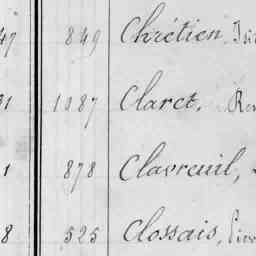 47 849 Chrétien,
1187 Claret,
1 878 Clavreuil,
8 525 Clossais,